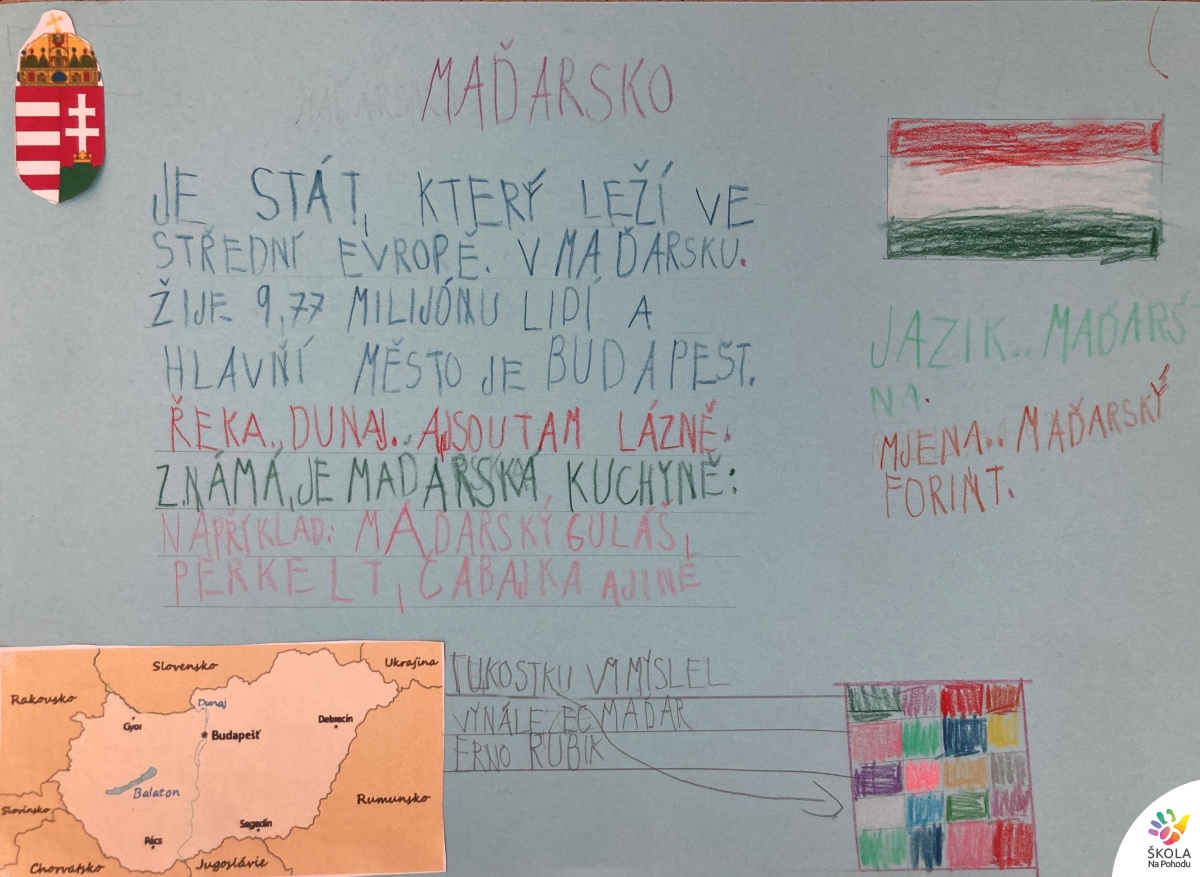 MAĎARSKO
JE STÁT, KTERÝ LEŽÍ VE
STŘEDNÍ EVROPĚ. V MAĎARSKU.
ŽIJE 9,77 MILIJÓNU LIDÍ A
HLAVŇÍ MĚSTO JE BUDAPEŠT.
ŘEKA., DUNAJ., AJSOUTAM LÁZNĚ.
ZNÁMÁ, JE MAĎARSKÁ KUCHYNĚ:
NAPŘÍKLAD: MAĎARSKÝ GULÁŠ,
PERKELT, ČABAJKA AJINÉ
JAZIK.. MAĎARŠ
NA.
MJENA.. MAĎARSKÝ
FORINT.
TUKOSTKU VYMYSLEL
VYNÁLEZEC MAĎAR
ERNO RUBIK
Slovensko
Ukrajina
Rakousko
Dunaj
Gyor
Debrecín
Budapešť
Balaton
Rumunsko
Slovinsko
Segedín
Pécs
Chorvatsko
Jugoslávie
ŠKOLA
Na Pohodu